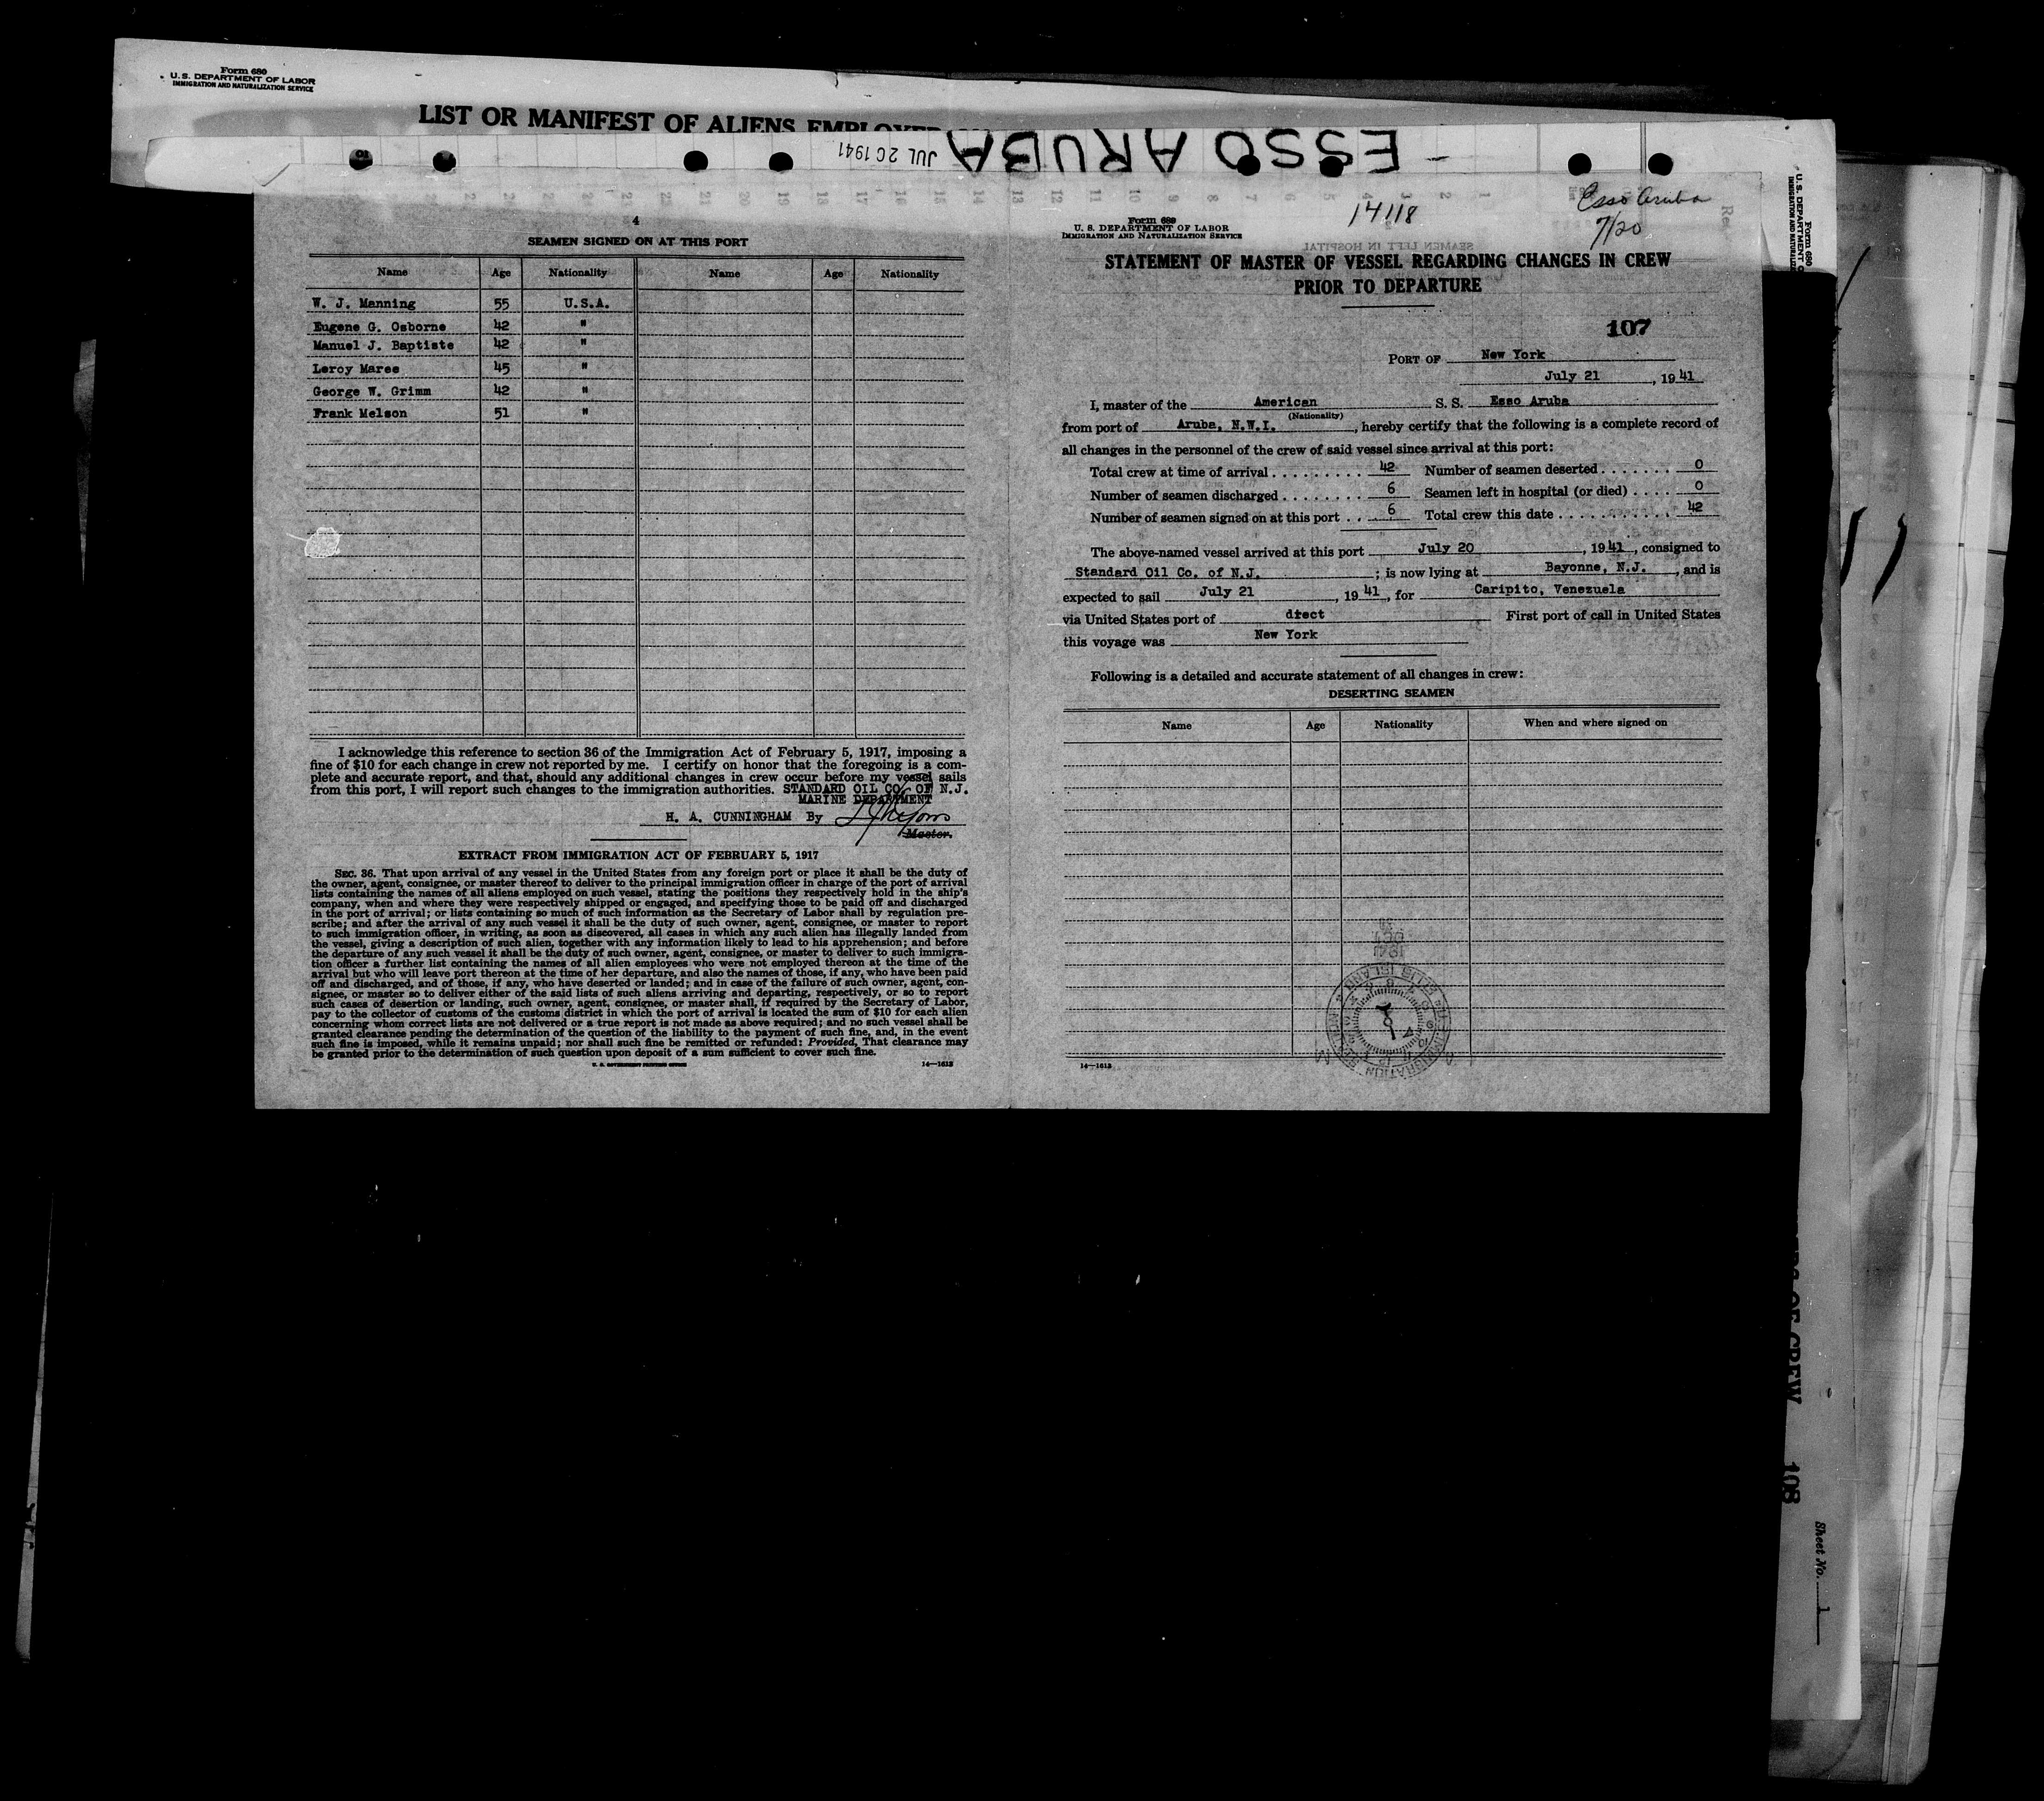 Form 680
U. S. DEPARTMENT OF LABOR
IMMIGRATION AND NATURALIZATION SERVICE
LIST OR MANIFEST OF ALIENS EMPLOYED
ESSO ARUBA
JUL 20 1941
4
SEAMEN SIGNED ON AT THIS PORT
Name Age Nationality Name Age Nationality
W. J. Manning 55 U.S.A.
Eugene G. Osborne 42 "
Manuel J. Baptiste 42 "
Leroy Maree 45 "
George W. Grimm 42 "
Frank Melson 51 "
I acknowledge this reference to section 36 of the Immigration Act of February 5, 1917, imposing a
fine of $10 for each change in crew not reported by me. I certify on honor that the foregoing is a com-
plete and accurate report, and that, should any additional changes in crew occur before my vessel sails
from this port, I will report such changes to the immigration authorities. STANDARD OIL CO. OF N.J.
MARINE DEPARTMENT
H. A. CUNNINGHAM By
Master.
EXTRACT FROM IMMIGRATION ACT OF FEBRUARY 5, 1917
SEC. 36. That upon arrival of any vessel in the United States from any foreign port or place it shall be the duty of
the owner, agent, consignee, or master thereof to deliver to the principal immigration officer in charge of the port of arrival
lists containing the names of all aliens employed on such vessel, stating the positions they respectively hold in the ship's
company, when and where they were respectively shipped or engaged, and specifying those to be paid off and discharged
in the port of arrival; or lists containing so much of such information as the Secretary of Labor shall by regulation pre-
scribe; and after the arrival of any such vessel it shall be the duty of such owner, agent, consignee, or master to report
to such immigration officer, in writing, as soon as discovered, all cases in which any such alien has illegally landed from
the vessel, giving a description of such alien, together with any information likely to lead to his apprehension; and before
the departure of any such vessel it shall be the duty of such owner, agent, consignee, or master to deliver to such immigra-
tion officer a further list containing the names of all alien employees who were not employed thereon at the time of the
arrival but who will leave port thereon at the time of her departure, and also the names of those, if any, who have been paid
off and discharged, and of those, if any, who have deserted or landed; and in case of the failure of such owner, agent, con-
signee, or master so to deliver either of the said lists of such aliens arriving and departing, respectively, or so to report
such cases of desertion or landing, such owner, agent, consignee, or master shall, if required by the Secretary of Labor,
pay to the collector of customs of the customs district in which the port of arrival is located the sum of $10 for each alien
concerning whom correct lists are not delivered or a true report is not made as above required; and no such vessel shall be
granted clearance pending the determination of the question of the liability to the payment of such fine, and, in the event
such fine is imposed, while it remains unpaid; nor shall such fine be remitted or refunded: Provided, That clearance may
be granted prior to the determination of such question upon deposit of a sum sufficient to cover such fine.
U. S. GOVERNMENT PRINTING OFFICE 14—1613
14118
Esso Aruba
7/20
Form 689
U. S. DEPARTMENT OF LABOR
IMMIGRATION AND NATURALIZATION SERVICE
STATEMENT OF MASTER OF VESSEL REGARDING CHANGES IN CREW
PRIOR TO DEPARTURE
107
PORT OF New York
July 21, 1941
I, master of the American S. S. Esso Aruba
(Nationality)
from port of Aruba, N.W.I., hereby certify that the following is a complete record of
all changes in the personnel of the crew of said vessel since arrival at this port:
Total crew at time of arrival . . . . . . . . . 42 Number of seamen deserted . . . . . . . 0
Number of seamen discharged . . . . . . . . 6 Seamen left in hospital (or died) . . . . 0
Number of seamen signed on at this port . . 6 Total crew this date . . . . . . . . . . . 42
The above-named vessel arrived at this port July 20, 1941, consigned to
Standard Oil Co. of N.J.; is now lying at Bayonne, N.J., and is
expected to sail July 21, 1941, for Caripito, Venezuela
via United States port of diect First port of call in United States
this voyage was New York
Following is a detailed and accurate statement of all changes in crew:
DESERTING SEAMEN
Name Age Nationality When and where signed on
14—1613
Form 680
U. S. DEPARTMENT O
108
Sheet No. 1